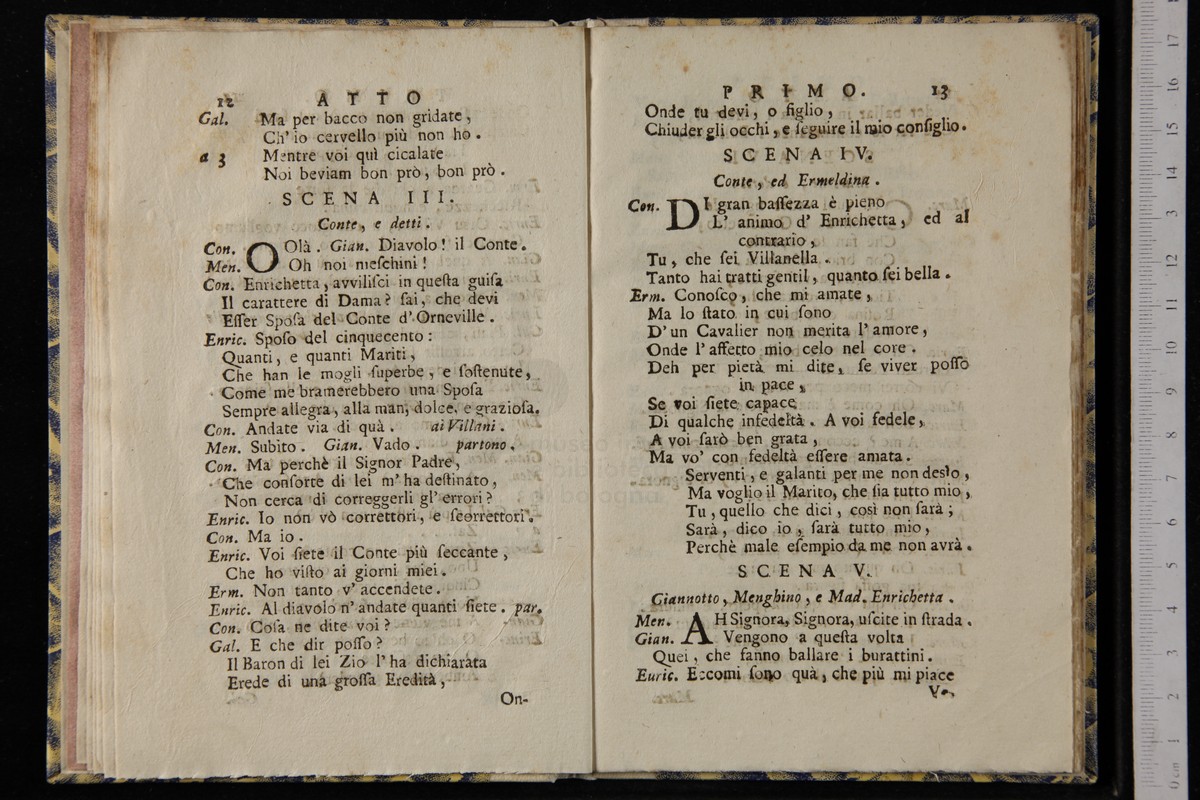 12 ATTO
Gal. Ma per bacco non gridate,
Ch' io cervello più non ho.
a 3 Mentre voi quì cicalate
Noi beviam bon prò, bon prò.
SCENA III.
Conte, e detti.
Con. OOlà. Gian. Diavolo! il Conte.
Men. Oh noi meſchini!
Con. Enrichetta, avviliſci in queſta guiſa
Il carattere di Dama? ſai, che devi
Eſſer Spoſa del Conte d' Orneville.
Enric. Spoſo del cinquecento:
Quanti, e quanti Mariti,
Che han le mogli ſuperbe, e ſoſtenute,
Come me bramerebbero una Spoſa
Sempre allegra, alla man, dolce, e grazioſa.
Con. Andate via di quà. ai Villani.
Men. Subito. Gian. Vado. partono.
Con. Ma perchè il Signor Padre,
Che conſorte di lei m' ha deſtinato,
Non cerca di correggerli gl' errori?
Enric. Io non vò correttori, e ſcorrettori.
Con. Ma io.
Enric. Voi ſiete il Conte più ſeccante,
Che ho viſto ai giorni miei.
Erm. Non tanto v' accendete.
Enric. Al diavolo n' andate quanti ſiete. par.
Con. Coſa ne dite voi?
Gal. E che dir poſſo?
Il Baron di lei Zio l' ha dichiarata
Erede di una groſſa Eredità,
On-
PRIMO. 13
Onde tu devi, o figlio,
Chiuder gli occhi, e ſeguire il mio conſiglio.
SCENA IV.
Conte, ed Ermeldina.
Con. DI gran baſſezza è pieno
L' animo d' Enrichetta, ed al
contrario,
Tu, che ſei Villanella.
Tanto hai tratti gentil, quanto ſei bella.
Erm. Conoſco, che mi amate,
Ma lo ſtato in cui ſono
D' un Cavalier non merita l' amore,
Onde l' affetto mio celo nel core.
Deh per pietà mi dite, ſe viver poſſo
in pace,
Se voi ſiete capace
Di qualche infedeltà. A voi fedele,
A voi ſarò ben grata,
Ma vo' con fedeltà eſſere amata.
Serventi, e galanti per me non desìo,
Ma voglio il Marito, che ſia tutto mio,
Tu, quello che dici, così non ſarà;
Sarà, dico io, ſarà tutto mio,
Perchè male eſempio da me non avrà.
SCENA V.
Giannotto, Menghino, e Mad. Enrichetta.
Men. AH Signora, Signora, uſcite in ſtrada.
Gian. Vengono a queſta volta
Quei, che fanno ballare i burattini.
Euric. Eccomi ſono quà, che più mi piace
Ve-